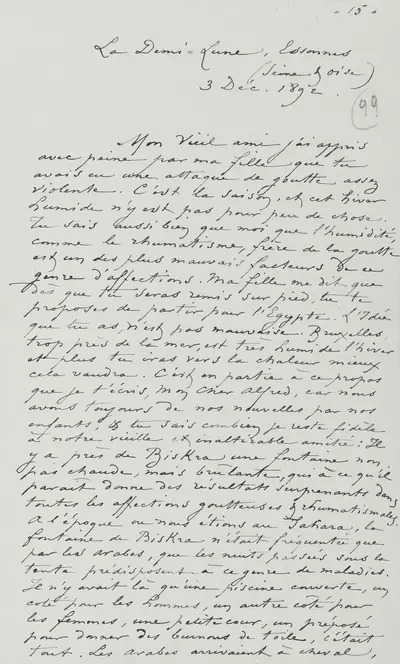 - 15 -
La Demi-Lune, Essonnes
(Seine & Oise)
3 Déc. 1892.
99
Mon Vieil ami j'ai appris
avec peine par ma fille que tu
avais eu une attaque de goutte assez
violente. C'est la saison, et cet hiver
humide n'y est pas pour peu de chose.
Tu sais aussi bien que moi que l'humidité
comme le rhumatisme, frère de la goutte
est un des plus mauvais facteurs de ce
genre d'affections. Ma fille me dit que
dès que tu seras remis sur pied, tu te
proposes de partir pour l'Egypte. L'Idée
que tu as, n'est pas mauvaise. Bruxelles
trop près de la mer, est très humide l'hiver
et plus tu iras vers la chaleur mieux
cela vaudra. C'est en partie à ce propos
que je t'écris, mon cher Alfred, car nous
avons toujours de nos nouvelles par nos
enfants, & tu sais combien je reste fidèle
à notre vieille et inaltérable amitié: Il
y a près de Biskra une fontaine non
pas chaude, mais brûlante, qui à ce qu'il
parait donne des résultats surprenants dans
toutes les affections goutteuses & rhumatismales.
A l'époque ou nous étions au Sahara, la
fontaine de Biskra n'était fréquentée que
par les arabes, que les nuits passées sous la
tente prédisposent à ce genre de maladies.
Il n'y avait là qu'une piscine couverte, un
coté pour les hommes, un autre côté pour
les femmes, une petite cour, un préposé
pour donner des burnous de toile, c'était
tout. Les arabes arrivaient à cheval,